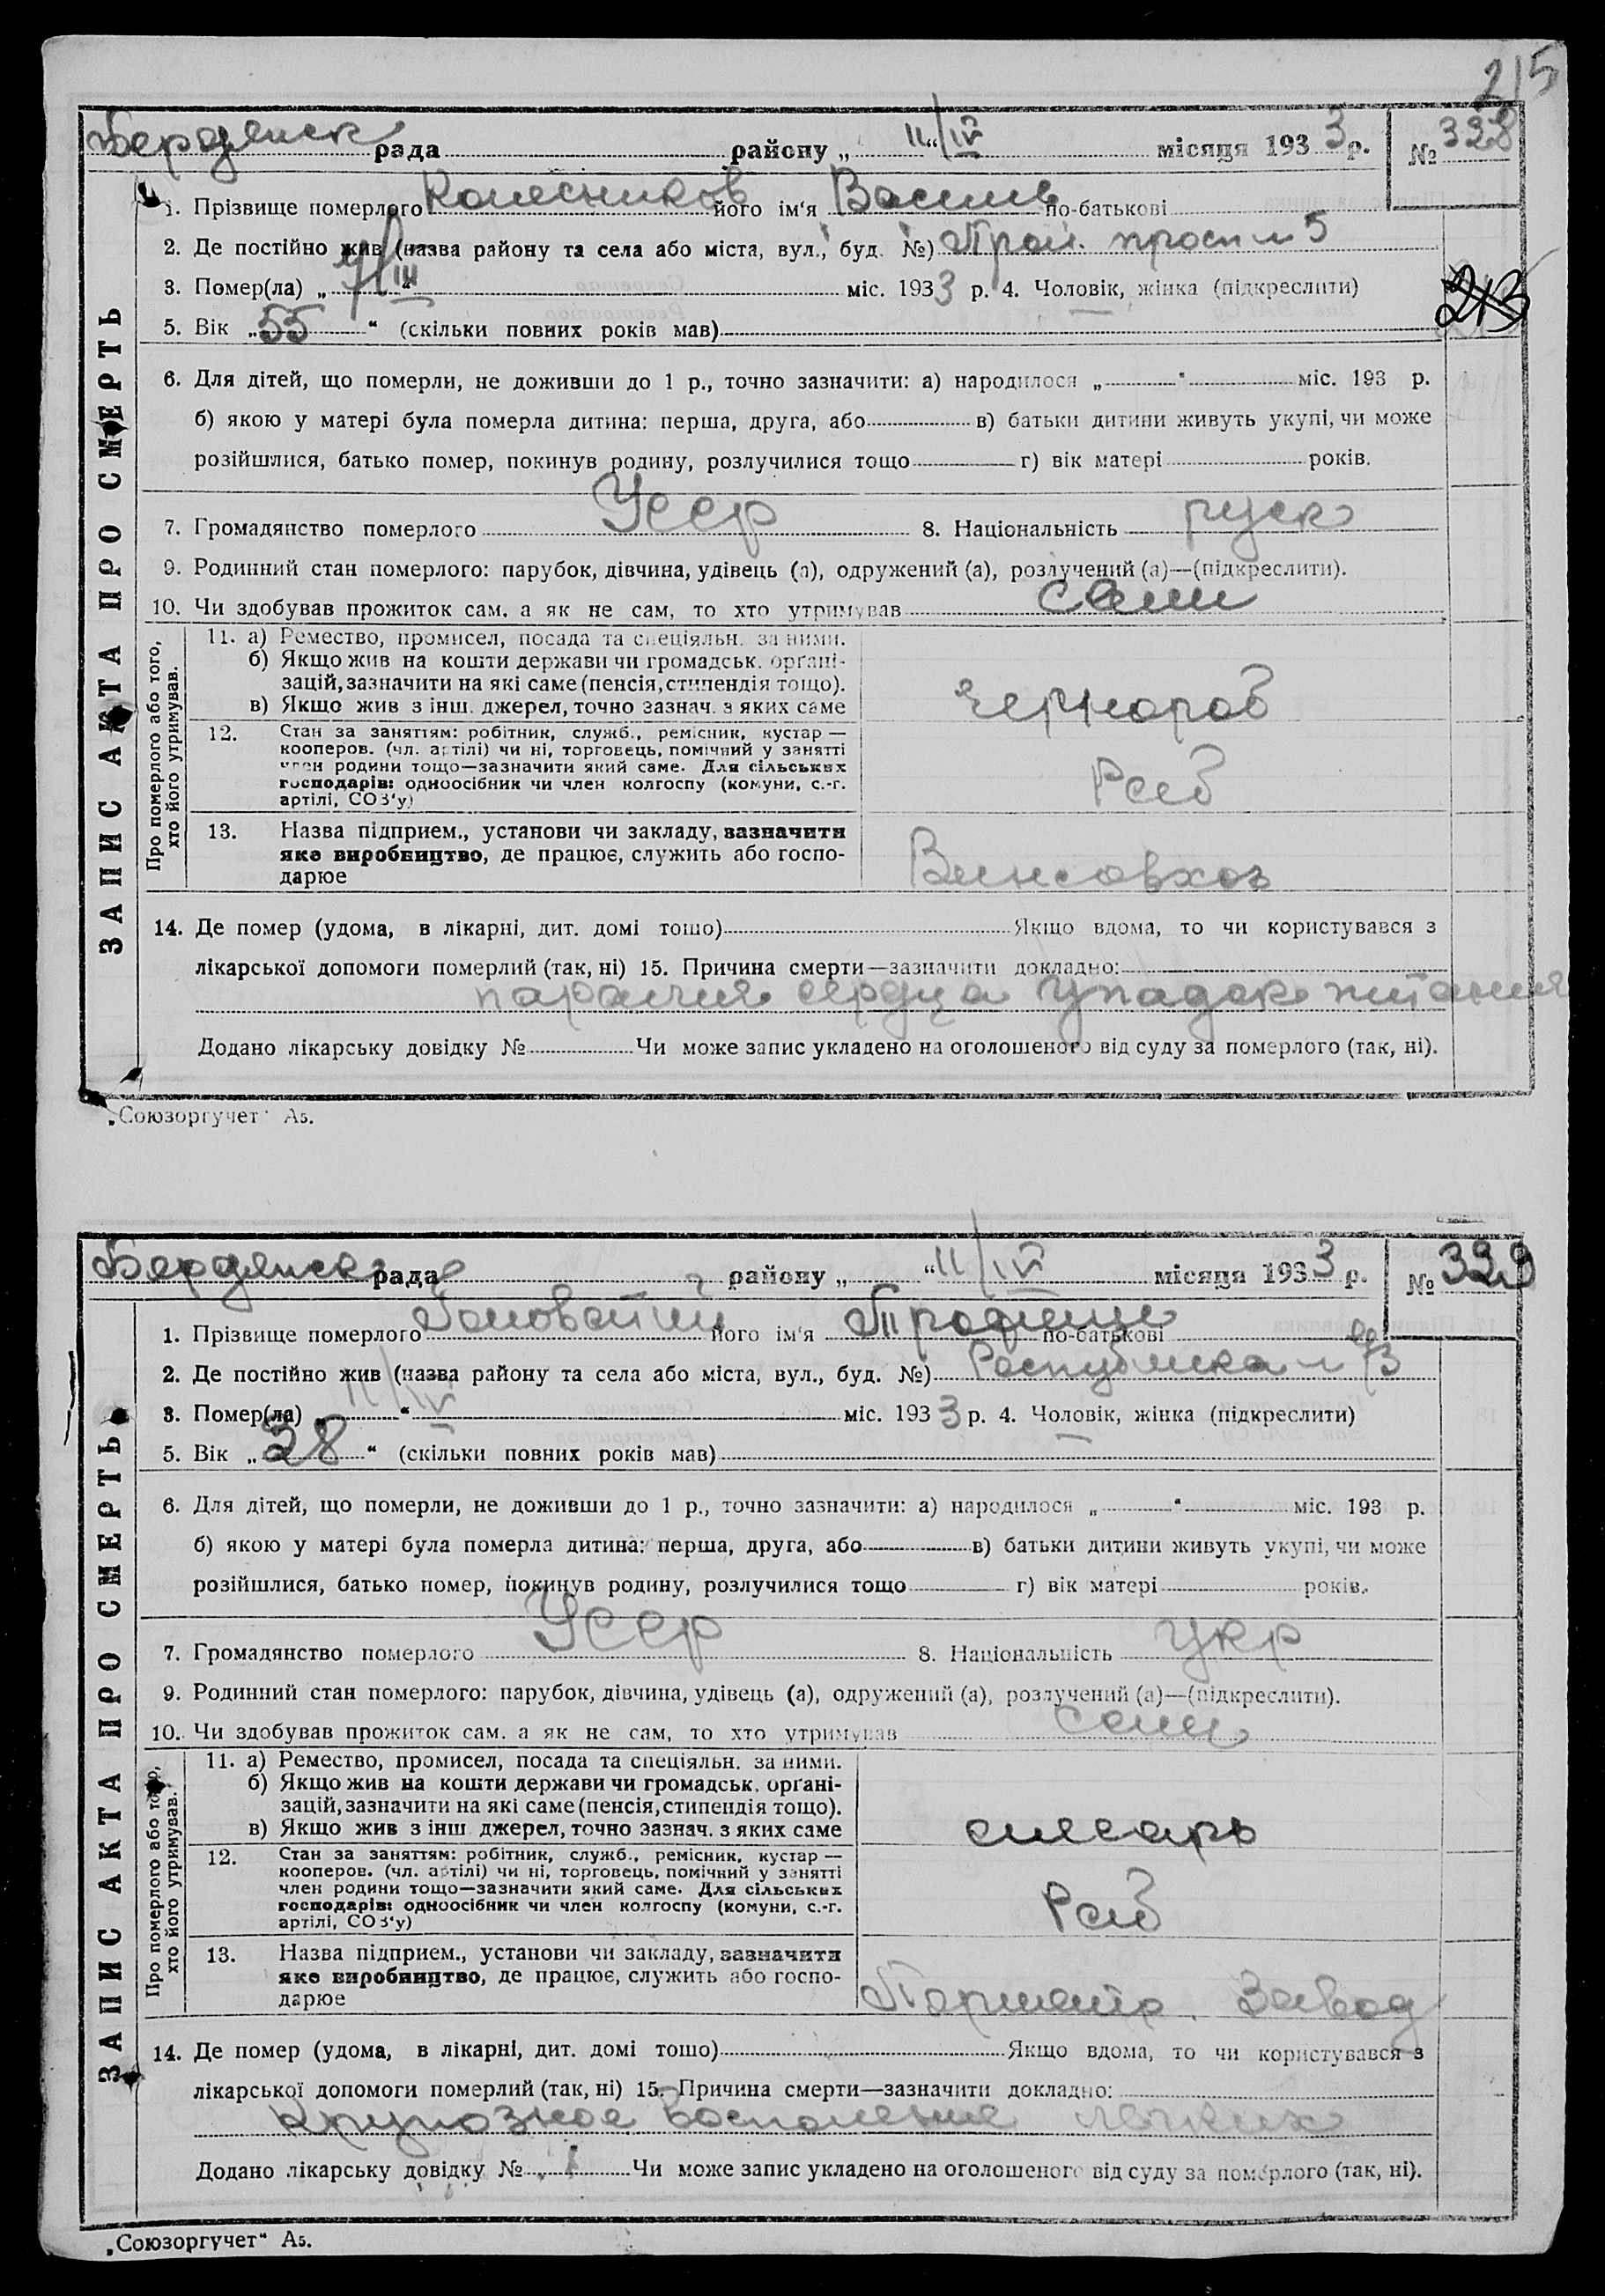 215
Бердянск рада району „ 11“/IV місяця 1933 р. № 328
1. Прізвище померлого Колесников його ім'я Василь по-батькові
2. Де постійно жив (назва району та села або міста, вул., буд. №) 5
3. Помер(ла) „ 7/III “ міс. 1933 р. 4. Чоловік, жінка (підкреслити)
213
5. Вік „ 55 “ (скільки повних років мав)
6. Для дітей, що померли, не доживши до 1 р., точно зазначити: а) народилося „ “ міс. 193 р.
б) якою у матері була померла дитина: перша, друга, або в) батьки дитини живуть укупі, чи може
розійшлися, батько помер, покинув родину, розлучилися тощо г) вік матері років.
7. Громадянство померлого Усср 8. Національність руск
9. Родинний стан померлого: парубок, дівчина, удівець (а), одружений (а), розлучений (а)—(підкреслити).
10. Чи здобував прожиток сам. а як не сам, то хто утримував сам
ЗАПИС АКТА ПРО СМЕРТЬ
Про померлого або того, хто його утримував.
11. а) Ремество, промисел, посада та спеціяльн. за ними.
б) Якщо жив на кошти держави чи громадськ. органі-
зацій, зазначити на які саме (пенсія, стипендія тощо).
в) Якщо жив з інш. джерел, точно зазнач. з яких саме
Чернораб
12. Стан за заняттям: робітник, служб., ремісник, кустар —
кооперов. (чл. артілі) чи ні, торговець, помічний у занятті
член родини тощо—зазначити який саме. Для сільських
господарів: одноосібник чи член колгоспу (комуни, с.-г.
артілі, СОЗ'у)
Раб
13. Назва підприєм., установи чи закладу, зазначити
яке виробництво, де працює, служить або госпо-
дарює
Винсовхоз
14. Де помер (удома, в лікарні, дит. домі тощо) Якщо вдома, то чи користувався з
лікарської допомоги померлий (так, ні) 15. Причина смерти—зазначити докладно:
паралич сердца упадок питания
Додано лікарську довідку № Чи може запис укладено на оголошеного від суду за померлого (так, ні).
„Союзоргучет“ А5.
Бердянск рада району „ “ 11/IV місяця 1933 р. № 329
1. Прізвище померлого його ім'я по-батькові
2. Де постійно жив (назва району та села або міста, вул., буд. №) Республіка
3. Помер(ла) „ 11/IV “ міс. 1933 р. 4. Чоловік, жінка (підкреслити)
5. Вік „ 38 “ (скільки повних років мав)
6. Для дітей, що померли, не доживши до 1 р., точно зазначити: а) народилося „ “ міс. 193 р.
б) якою у матері була померла дитина: перша, друга, або в) батьки дитини живуть укупі, чи може
розійшлися, батько помер, покинув родину, розлучилися тощо г) вік матері років.
7. Громадянство померлого Усср 8. Національність укр
9. Родинний стан померлого: парубок, дівчина, удівець (а), одружений (а), розлучений (а)—(підкреслити).
10. Чи здобував прожиток сам. а як не сам, то хто утримував сам
ЗАПИС АКТА ПРО СМЕРТЬ
Про померлого або того, хто його утримував.
11. а) Ремество, промисел, посада та спеціяльн. за ними.
б) Якщо жив на кошти держави чи громадськ. органі-
зацій, зазначити на які саме (пенсія, стипендія тощо).
в) Якщо жив з інш. джерел, точно зазнач. з яких саме
слесарь
12. Стан за заняттям: робітник, служб., ремісник, кустар —
кооперов. (чл. артілі) чи ні, торговець, помічний у занятті
член родини тощо—зазначити який саме. Для сільських
господарів: одноосібник чи член колгоспу (комуни, с.-г.
артілі, СОЗ'у)
Раб
13. Назва підприєм., установи чи закладу, зазначити
яке виробництво, де працює, служить або госпо-
дарює
завод
14. Де помер (удома, в лікарні, дит. домі тощо) Якщо вдома, то чи користувався з
лікарської допомоги померлий (так, ні) 15. Причина смерти—зазначити докладно:
Крупозное воспаление легких
Додано лікарську довідку № Чи може запис укладено на оголошеного від суду за померлого (так, ні).
„Союзоргучет“ А5.